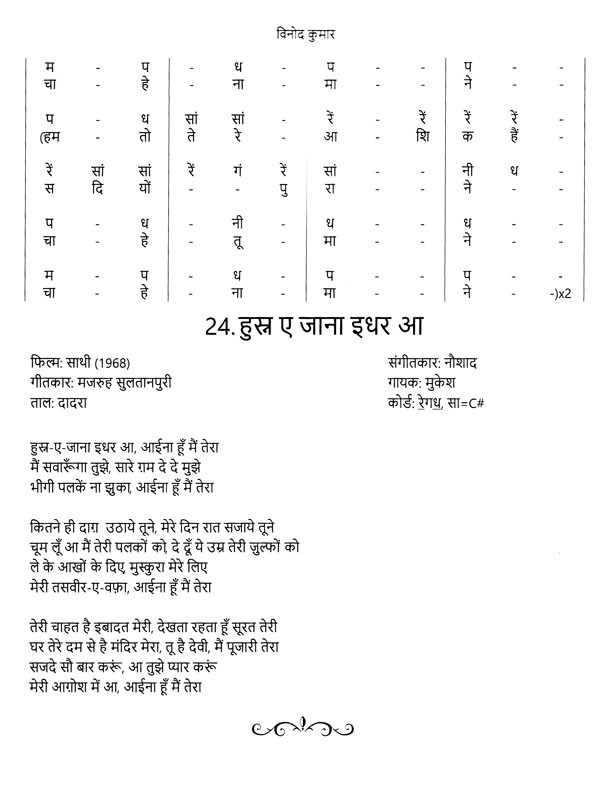 विनोद कुमार
म - प - ध - प - - प - -
चा - हे - ना - मा - - ने - -
प - ध सां सां - रें - रें रें रें -
(हम - तो ते रे - आ - शि क हैं -
रें सां सां रें गं रें सां - - नी ध -
स दि यों - - पु रा - - ने - -
प - ध - नी - ध - - ध - -
चा - हे - तू - मा - - ने - -
म - प - ध - प - - प - -
चा - हे - ना - मा - - ने - -)x2
24. हुस्न ए जाना इधर आ
फिल्म: साथी (1968) संगीतकार: नौशाद
गीतकार: मजरुह सुलतानपुरी गायक: मुकेश
ताल: दादरा कोर्ड: रे॒गध॒, सा=C#
हुस्न-ए-जाना इधर आ, आईना हूँ मैं तेरा
मैं सवारूँगा तुझे, सारे ग़म दे दे मुझे
भीगी पलकें ना झुका, आईना हूँ मैं तेरा
कितने ही दाग़ उठाये तूने, मेरे दिन रात सजाये तूने
चूम लूँ आ मैं तेरी पलकों को, दे दूँ ये उम्र तेरी ज़ुल्फों को
ले के आखों के दिए, मुस्कुरा मेरे लिए
मेरी तसवीर-ए-वफ़ा, आईना हूँ मैं तेरा
तेरी चाहत है इबादत मेरी, देखता रहता हूँ सूरत तेरी
घर तेरे दम से है मंदिर मेरा, तू है देवी, मैं पूजारी तेरा
सजदे सौ बार करूं, आ तुझे प्यार करूं
मेरी आग़ोश में आ, आईना हूँ मैं तेरा